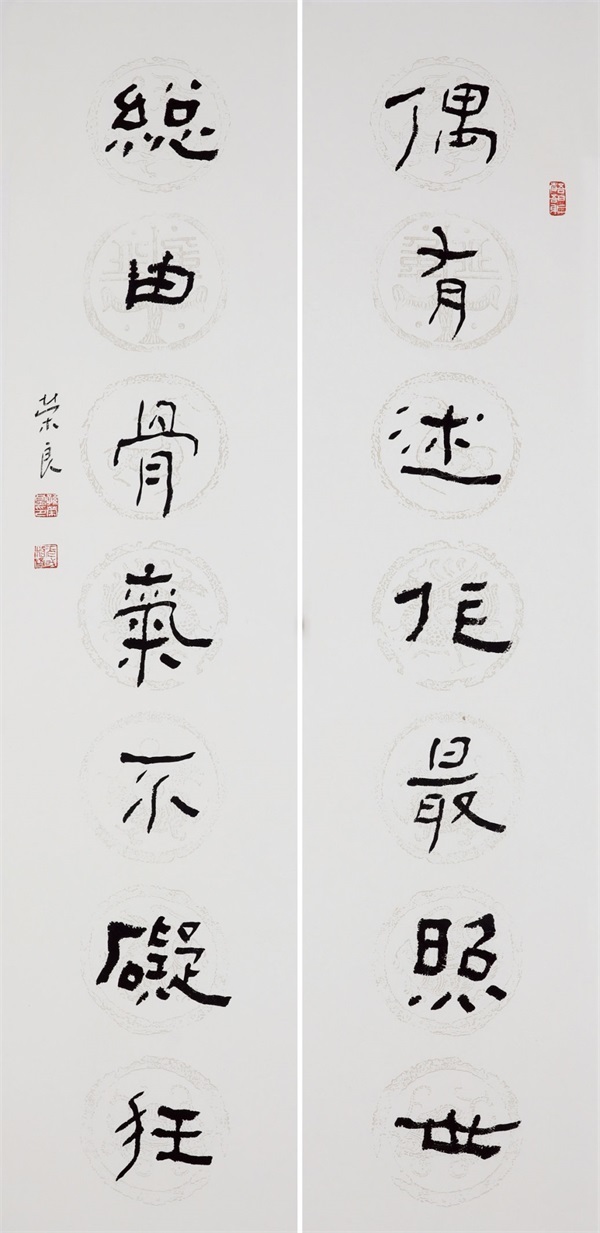 偶有述作最照世
總由骨氣不礙狂
荣良